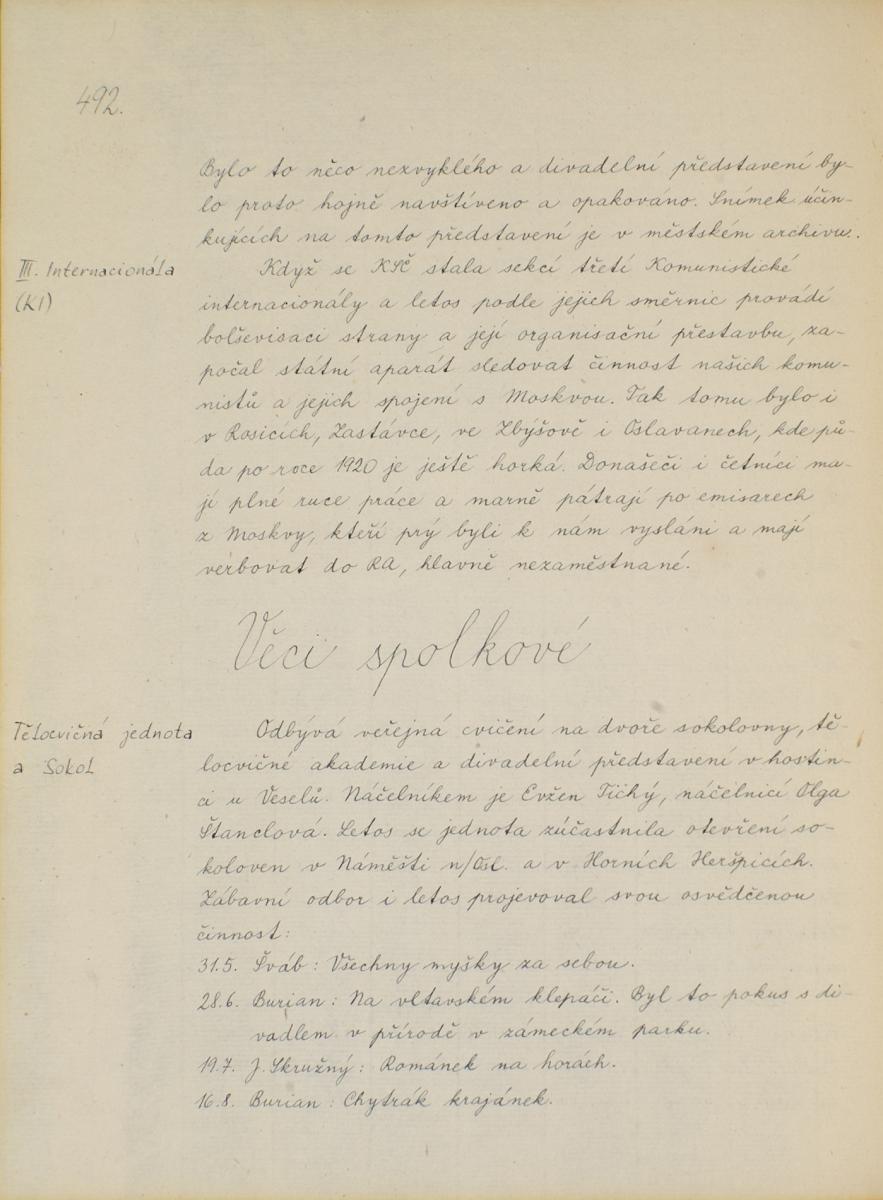 492.
Bylo to něco nezvyklého a divadelní představení by-
lo proto hojně navštíveno a opakováno. Snímek účin-
kujících na tomto představení je v městském archivu.
III. Internacionála
(KI)
Když se KSČ stala sekcí třetí Komunistické
internacionály a letos podle jejich směrnic provádí
bolševisaci strany a její organisační přestavbu, za-
počal státní aparát sledovat činnost našich komu-
nistů a jejich spojení s Moskvou. Tak tomu bylo i
v Rosicích, Zastávce, ve Zbýšově i Oslavanech, kde pů-
da po roce 1920 je ještě horká. Donašeči i četníci ma-
jí plné ruce práce a marně pátrají po emisarech
z Moskvy, kteří prý byli k nám vysláni a mají
verbovat do RA, hlavně nezaměstnané.
Věci spolkové
Tělocvičná jednota
a Sokol
Odbývá veřejná cvičení na dvoře sokolovny, tě-
locvičné akademie a divadelní představení v hostin-
ci u Veselů. Náčelníkem je Evžen Tichý, náčelnicí Olga
Štanclová. Letos se jednota zúčastnila otevření so-
koloven v Náměšti n/Osl. a v Horních Heršpicích.
Zábavní odbor i letos projevoval svou osvědčenou
činnost:
31.5. Šváb: Všechny myšky za sebou.
28.6. Burian: Na vltavském klepáči. Byl to pokus s di-
vadlem v přírodě v zámeckém parku.
19.7. J. Skružný: Románek na horách.
16.8. Burian: Chytrák krajánek.